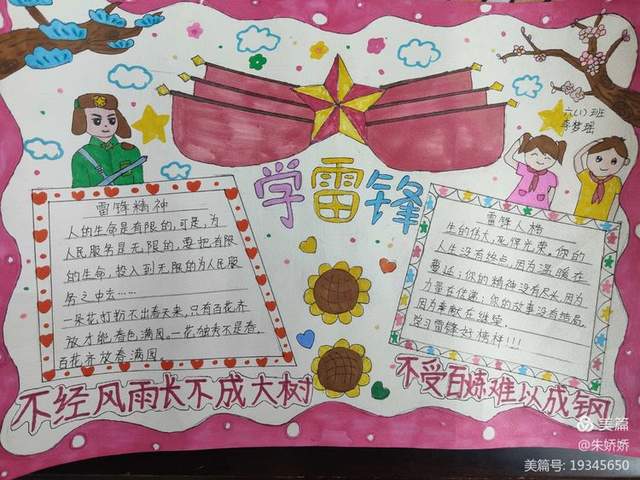 六(1)班
李梦瑶
学雷锋
雷锋精神
人的生命是有限的,可是,为
人民服务是无限的,要把有限
的生命,投入到无限的为人民服
务之中去……
一朵花打扮不出春天来,只有百花齐
放才能春色满园。一花独秀不是春,
百花齐放春满园。
雷锋人格
生的伟大,死得光荣。你的
人生没有终点,因为温暖在
蔓延;你的精神没有尽头,因为
力量在传递;你的故事没有结局,
因为奉献在继续。
学习雷锋好榜样!!!
不经风雨长不成大树
不受百炼难以成钢
美篇
@朱娇娇
美篇号: 19345650